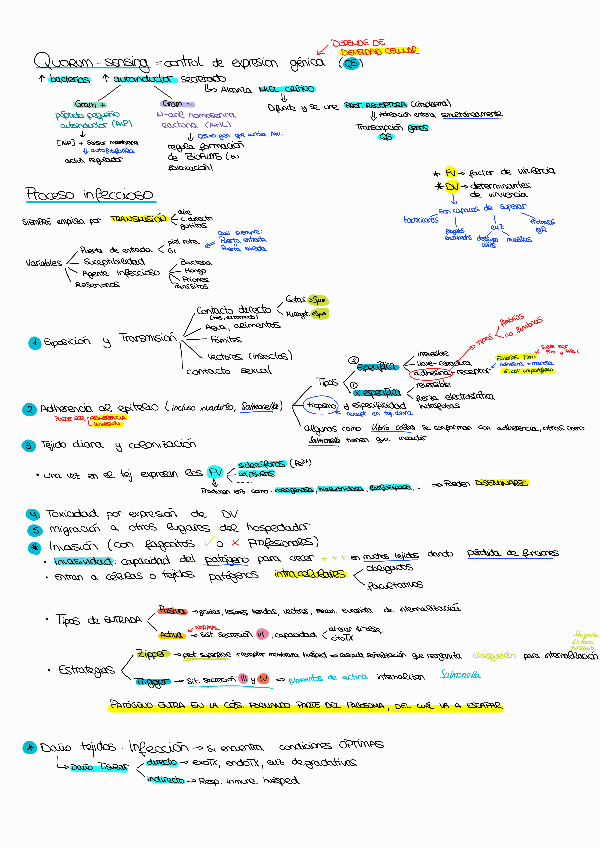 DEPENDE DE
DENSIDAD CELULAR
Quorum-sensing = control de expresion génica (QS)
↑ bacterias ↑ autoinductor secretado
↳ Alcanza NIVEL CRÍTICO
Gram +
Gram -
Difunde y se une PROT. RECEPTORA (citoplasma)
Péptido pequeño
autoinductor (AIP)
N-acil homoserina
lactona (AHL)
Transcripción genes
QS
[AIP] + sensor membrana
↓ autofosforila
activ. regulador
regula formación
de BIOFILMS
* FV → factor de virulencia
* DV → determinantes
de virulencia
Son capaces de superar
Proceso infeccioso
siempre empieza por TRANSMISIÓN
aire
c. directo
gotitas
Variables
Puerta de entrada
piel rota
GI
Casi siempre:
Puerta entrada
Puerta salida
Susceptibilidad
Agente infeccioso
Bacteria
Hongo
Priones
Parásitos
Reservorios
1 Exposición y Transmisión
Contacto directo
Gotas > 5µm
Agua, alimentos
Fómites
Vectores (insectos)
contacto sexual
2 Adherencia al epitelio (incluso invadirlo, Salmonella)
Tipos
② específica
irreversible
llave-cerradura
adhesina - receptor
Tipos
fimbrias
no fimbrias
① x específica
reversible
fuerza electrostática
hidrófobas
tropismo y especificidad
Algunos como Vibrio cholera se conforman con adherencia, otros como
Salmonella tienen que invadir
3 Tejido diana y colonización
• una vez en el tej expresan los FV
sideróforos (Fe³⁺)
→ Pueden DISEMINARSE
4 Toxicidad por expresión de DV
5 migración a otros lugares del hospedador
* Invasión (con fagocitos ✓ o x profesionales)
• invasividad: capacidad del patógeno para crecer +++ en muchos tejidos dando pérdida de funciones
• entran a células o tejidos patógenos intracelulares
obligados
facultativos
• Tipos de ENTRADA
Pasiva → grietas, lesiones, heridas, vectores, mecan. eucariota de internalización
Activa → Sist. secreción III capacidad
• Estrategias
Zipper → prot. superficie + receptor membrana huésped → cascada señalización que reorganiza citoesqueleto para internalización
Trigger → Sist. secreción III y IV → filamentos de actina internalizan Salmonella
PATÓGENO ENTRA EN LA CÉL. FORMANDO PARTE DEL FAGOSOMA, DEL CUÁL VA A ESCAPAR
* Daño tejidos. Infección → si encuentra condiciones ÓPTIMAS
↳ Daño Tisular
directo → exotx, endotx, enz. degradativas
indirecto → Resp. inmune huésped